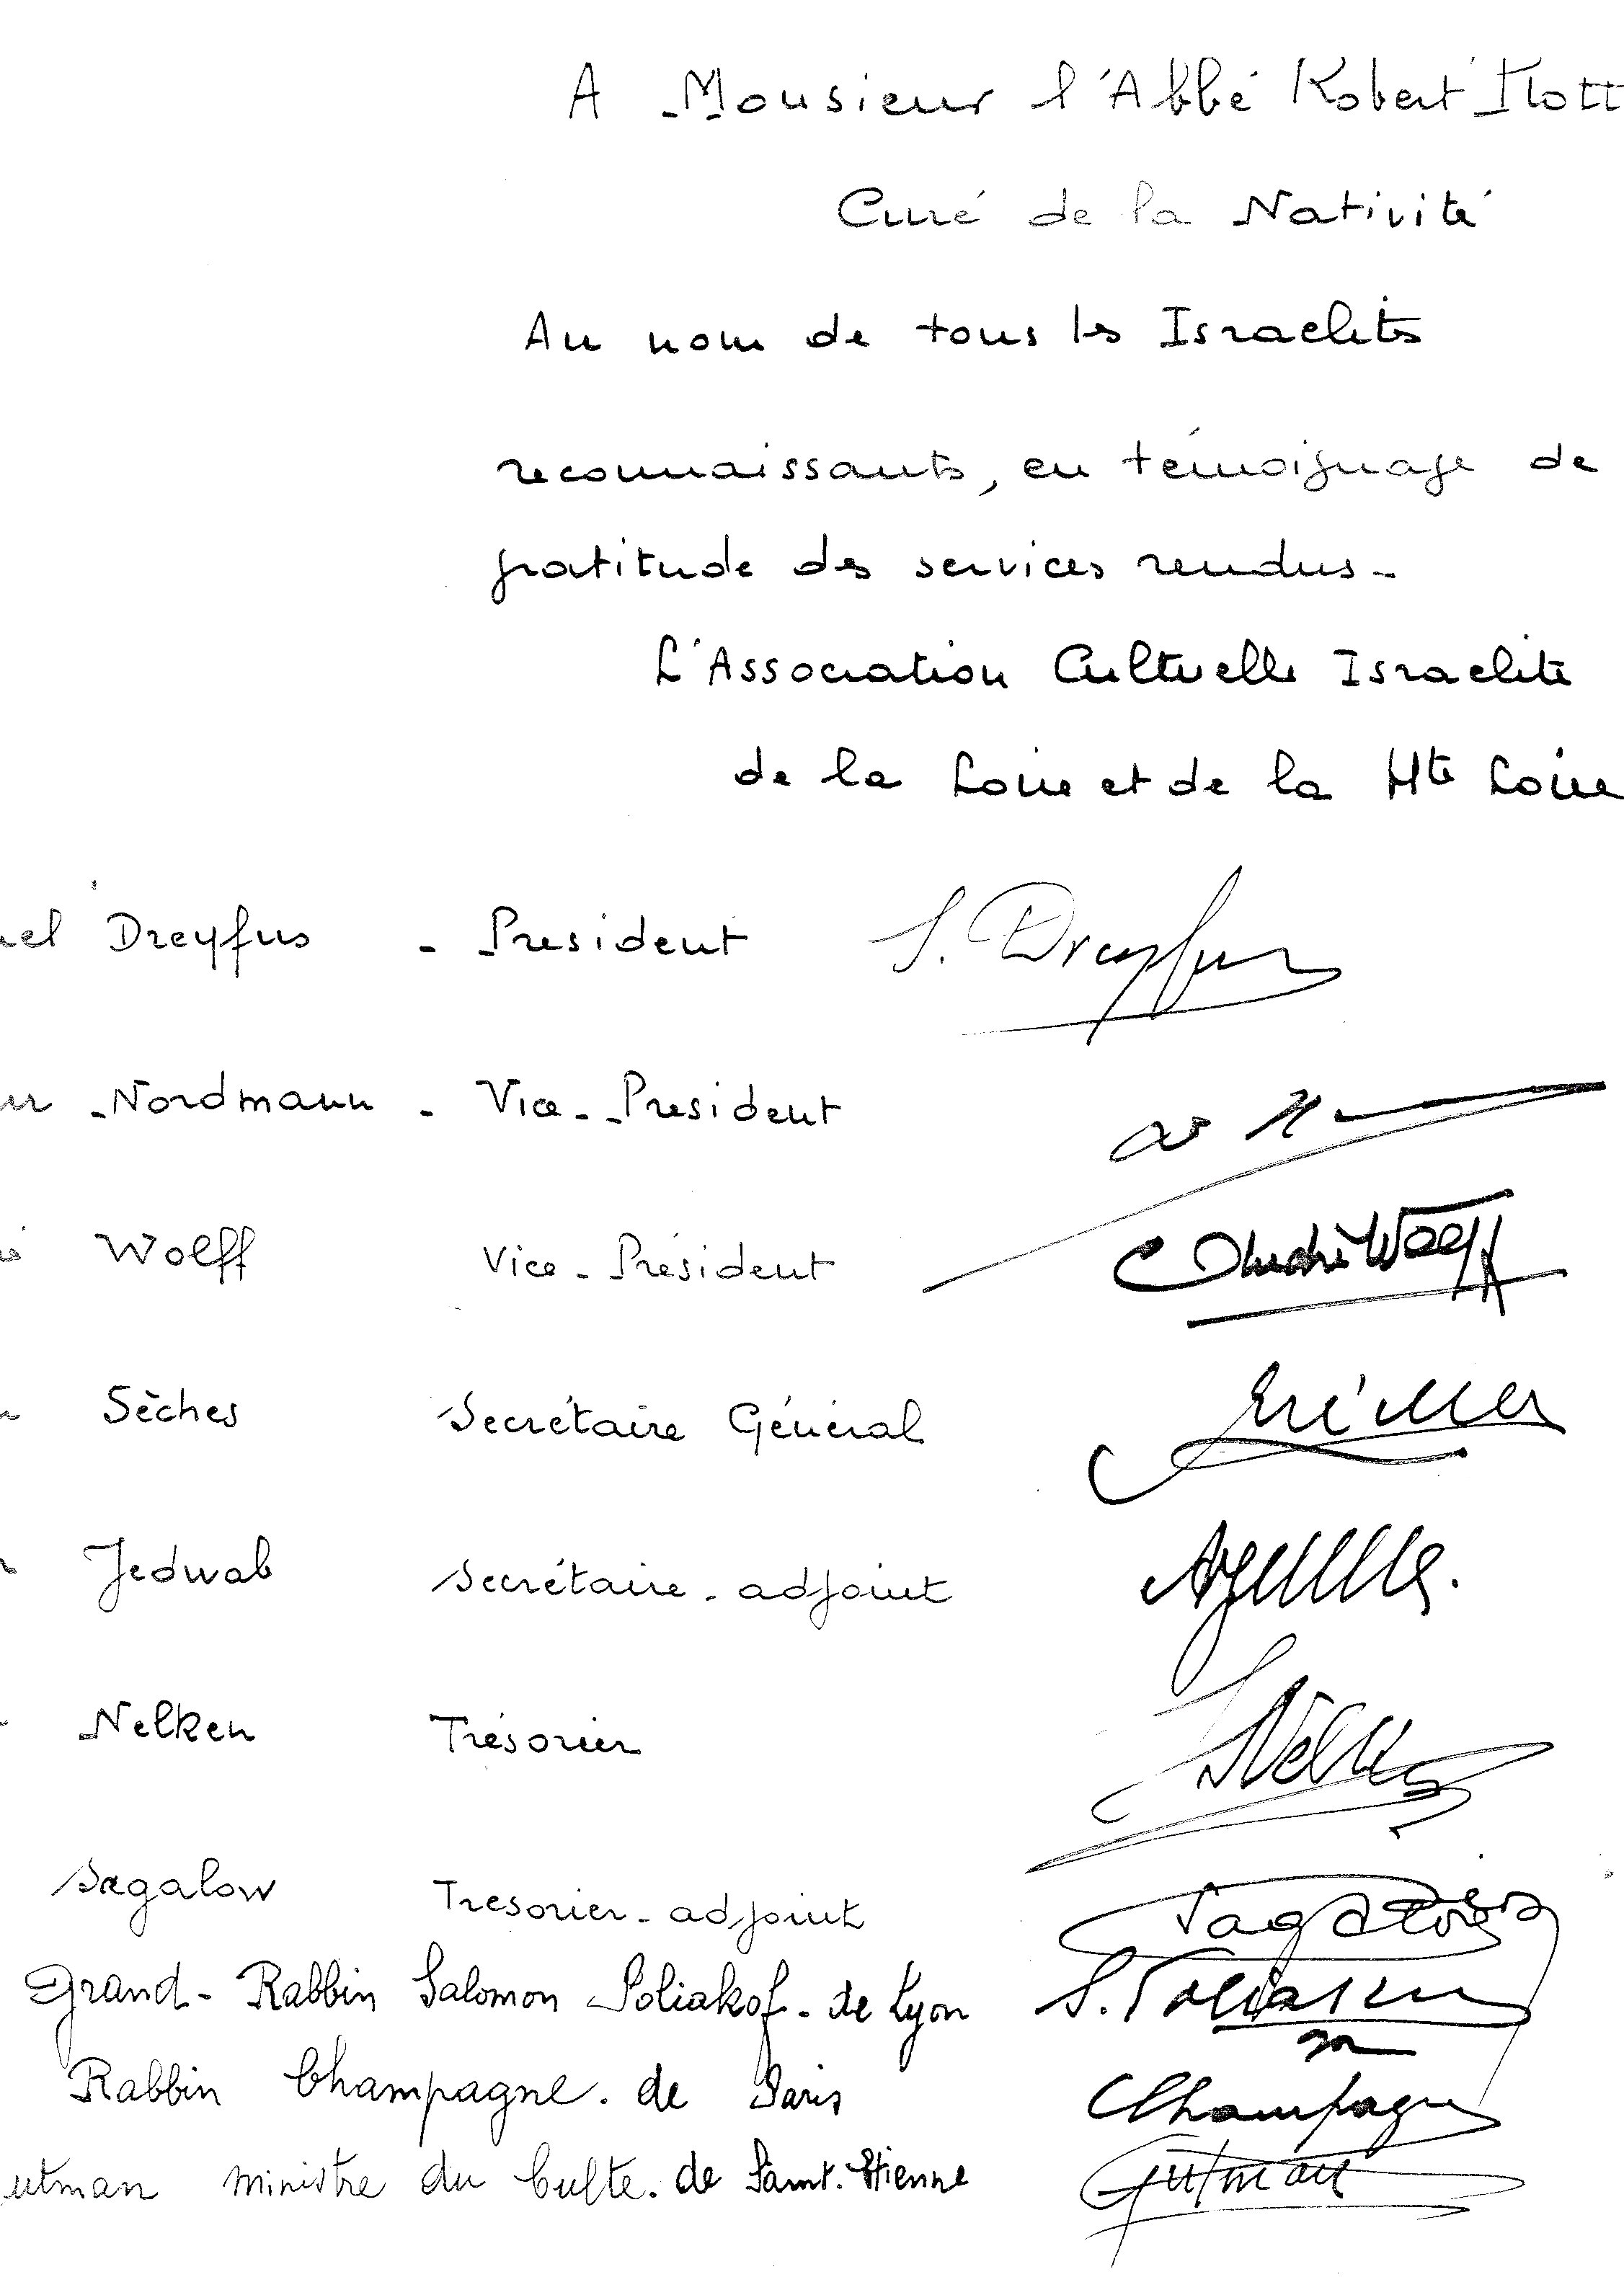 A Monsieur l'Abbé Robert
Curé de la Nativité
Au nom de tous les Israelites
reconnaissants, en témoignage de
gratitude des services rendus -
L'Association Cultuelle Israelite
de la Loire et de la Hte Loire
uel Dreyfus - President S. Dreyfus
Nordmann - Vice - President
Wolff Vice - Président André Wolff
Sèches Secrétaire Général
Jedwab Secrétaire - adjoint
Nelken Trésorier Nelken
Sagalow Tresorier - adjoint Sagalow
Grand - Rabbin Salomon Poliakof - de Lyon S. Poliakof
Rabbin Champagne . de Paris Champagne
utman ministre du Culte . de Saint . Etienne Gutman